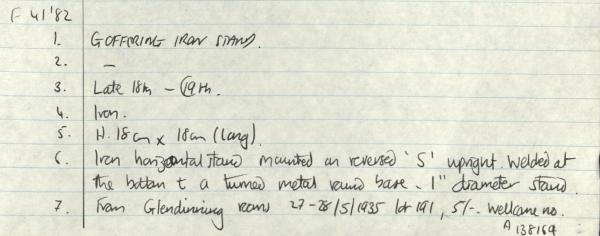 F 41'82
1. GOFFERING IRON STAND.
2. —
3. Late 18th – 19th.
4. Iron.
5. H. 18cm x 18cm (long).
6. Iron horizontal stand mounted on reversed 'S' upright. Welded at
the bottom to a turned metal round base. 1" diameter stand.
7. From Glendinning rooms 27-28/5/1935 lot 191, 5/-. Wellcome no.
A 138169